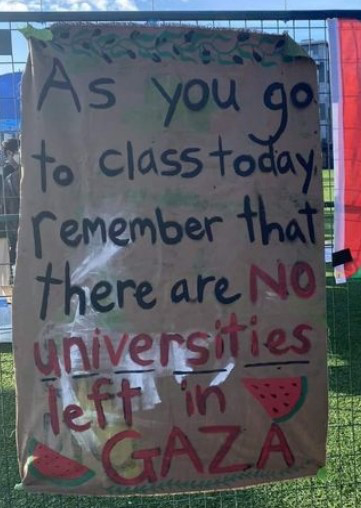 As you go
to class today,
remember that
there are NO
universities
left in
GAZA